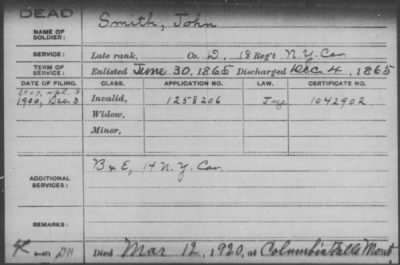 DEAD
NAME OF SOLDIER: Smith, John
SERVICE: Late rank, Co. D, 18 Reg't N.Y. Cav
TERM OF SERVICE: Enlisted June 30, 1865 Discharged Dec. 4, 1865
DATE OF FILING. CLASS. APPLICATION NO. LAW. CERTIFICATE NO.
1900, Dec. 3 Invalid, 1258206 1042902
Widow,
Minor,
ADDITIONAL SERVICES: B & E, 14 N.Y. Cav
REMARKS:
Died Mar 12, 1920, at Columbia Falls Mont